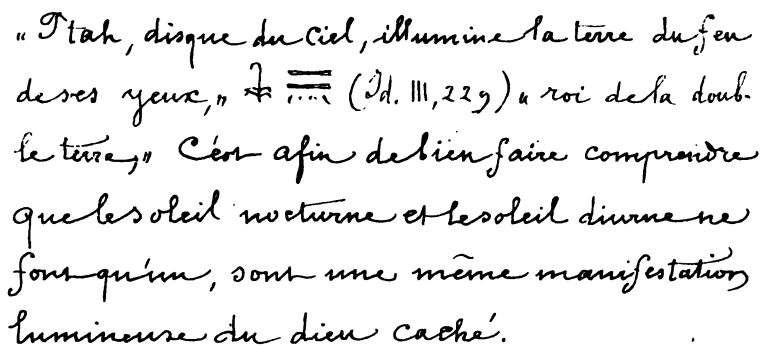 „ Ptah, disque du ciel, illumine la terre du feu
de ses yeux, „ 𓇓 𓇿𓇿 (Id. III, 229) „ roi de la doub-
le terre, „ C'est afin de bien faire comprendre
que le soleil nocturne et le soleil diurne ne
font qu'un, sont une même manifestation
lumineuse du dieu caché.